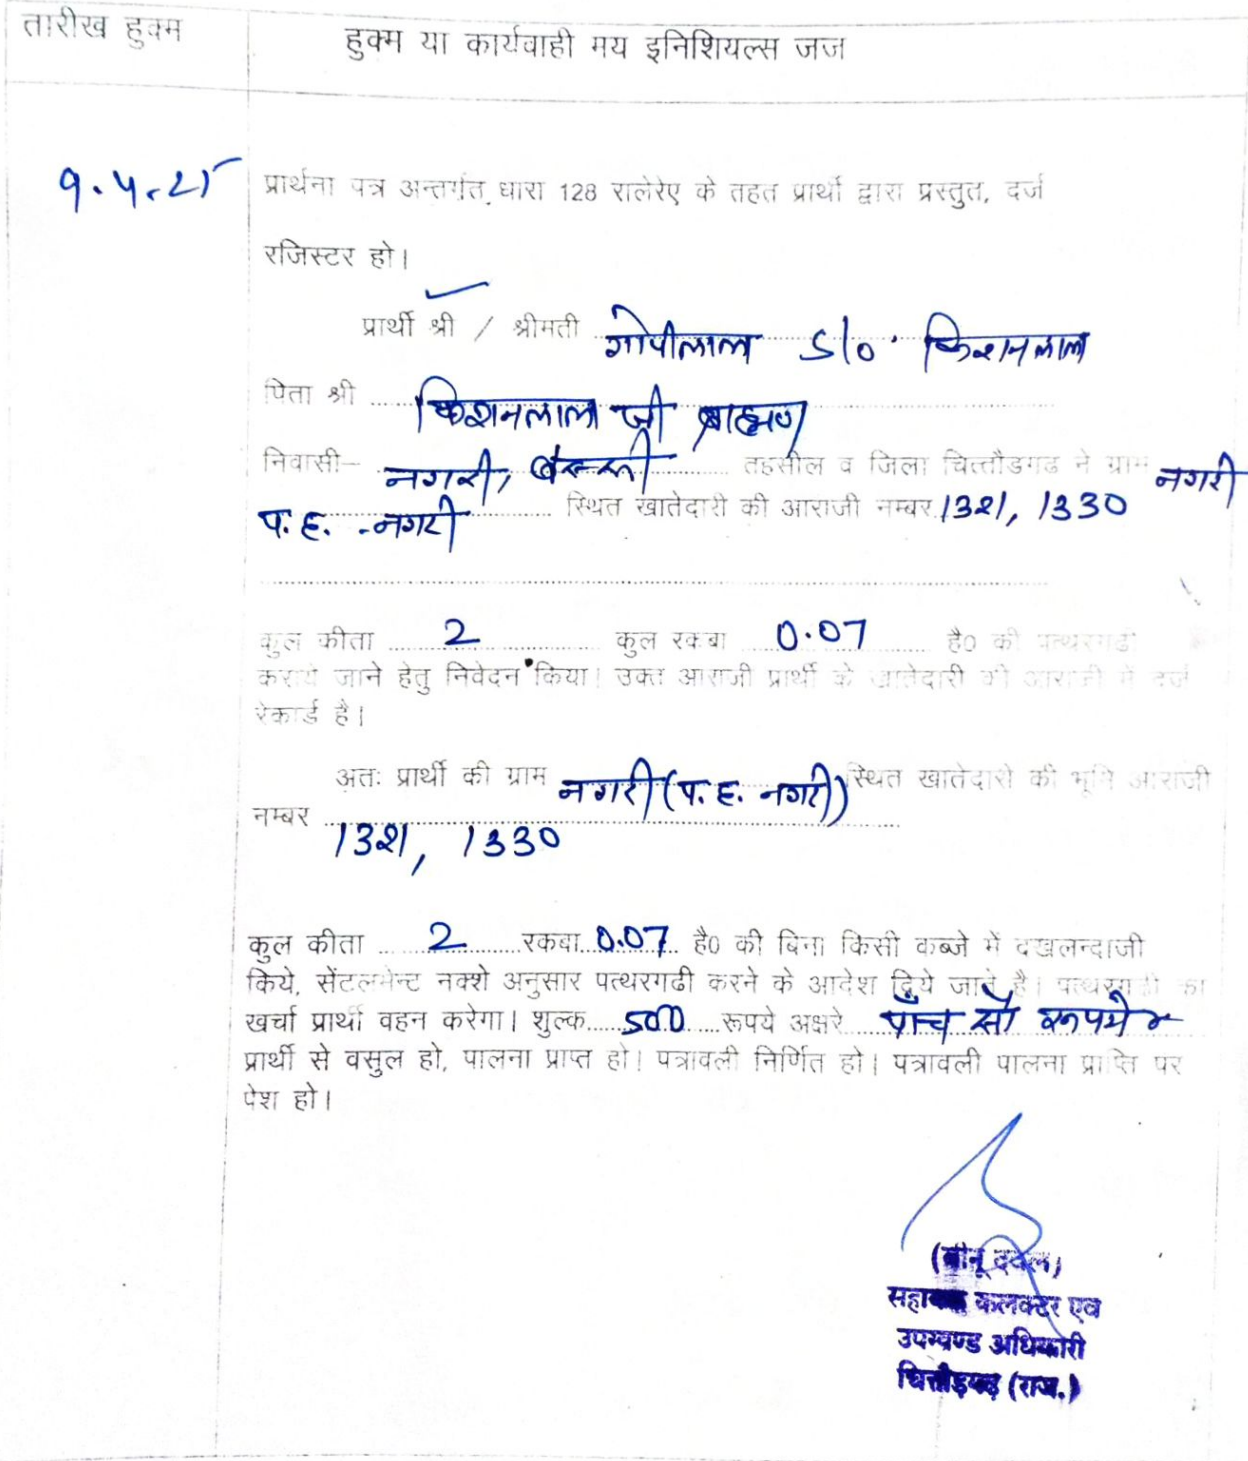 तारीख हुक्म
हुक्म या कार्यवाही मय इनिशियल्स जज
9.4.25
प्रार्थना पत्र अन्तर्गत धारा 128 रालेरेए के तहत प्रार्थी द्वारा प्रस्तुत, दर्ज
रजिस्टर हो।
प्रार्थी श्री / श्रीमती गोपीलाल S/o किशनलाल
पिता श्री किशनलाल जी ब्राह्मण
निवासी– नगरी, बस्सी तहसील व जिला चित्तौडगढ ने ग्राम नगरी
प.ह. नगरी स्थित खातेदारी की आराजी नम्बर 1321, 1330
कुल कीता 2 कुल रकबा 0.07 है0 की पत्थरगढी
कराये जाने हेतु निवेदन किया। उक्त आराजी प्रार्थी के खातेदारी की आराजी में दर्ज
रेकार्ड है।
अतः प्रार्थी की ग्राम नगरी (प.ह. नगरी) स्थित खातेदारी की भूमि आराजी
नम्बर
1321, 1330
कुल कीता 2 रकबा 0.07 है0 की बिना किसी कब्जे में दखलन्दाजी
किये, सेंटलमेन्ट नक्शे अनुसार पत्थरगढी करने के आदेश दिये जाते है। पत्थरगढी का
खर्चा प्रार्थी वहन करेगा। शुल्क 500 रूपये अक्षरे पाँच सौ रूपये
प्रार्थी से वसुल हो, पालना प्राप्त हो। पत्रावली निर्णित हो। पत्रावली पालना प्राप्ति पर
पेश हो।
सहायक कलक्टर एव
उपखण्ड अधिकारी
चित्तौड़गढ़ (राज.)